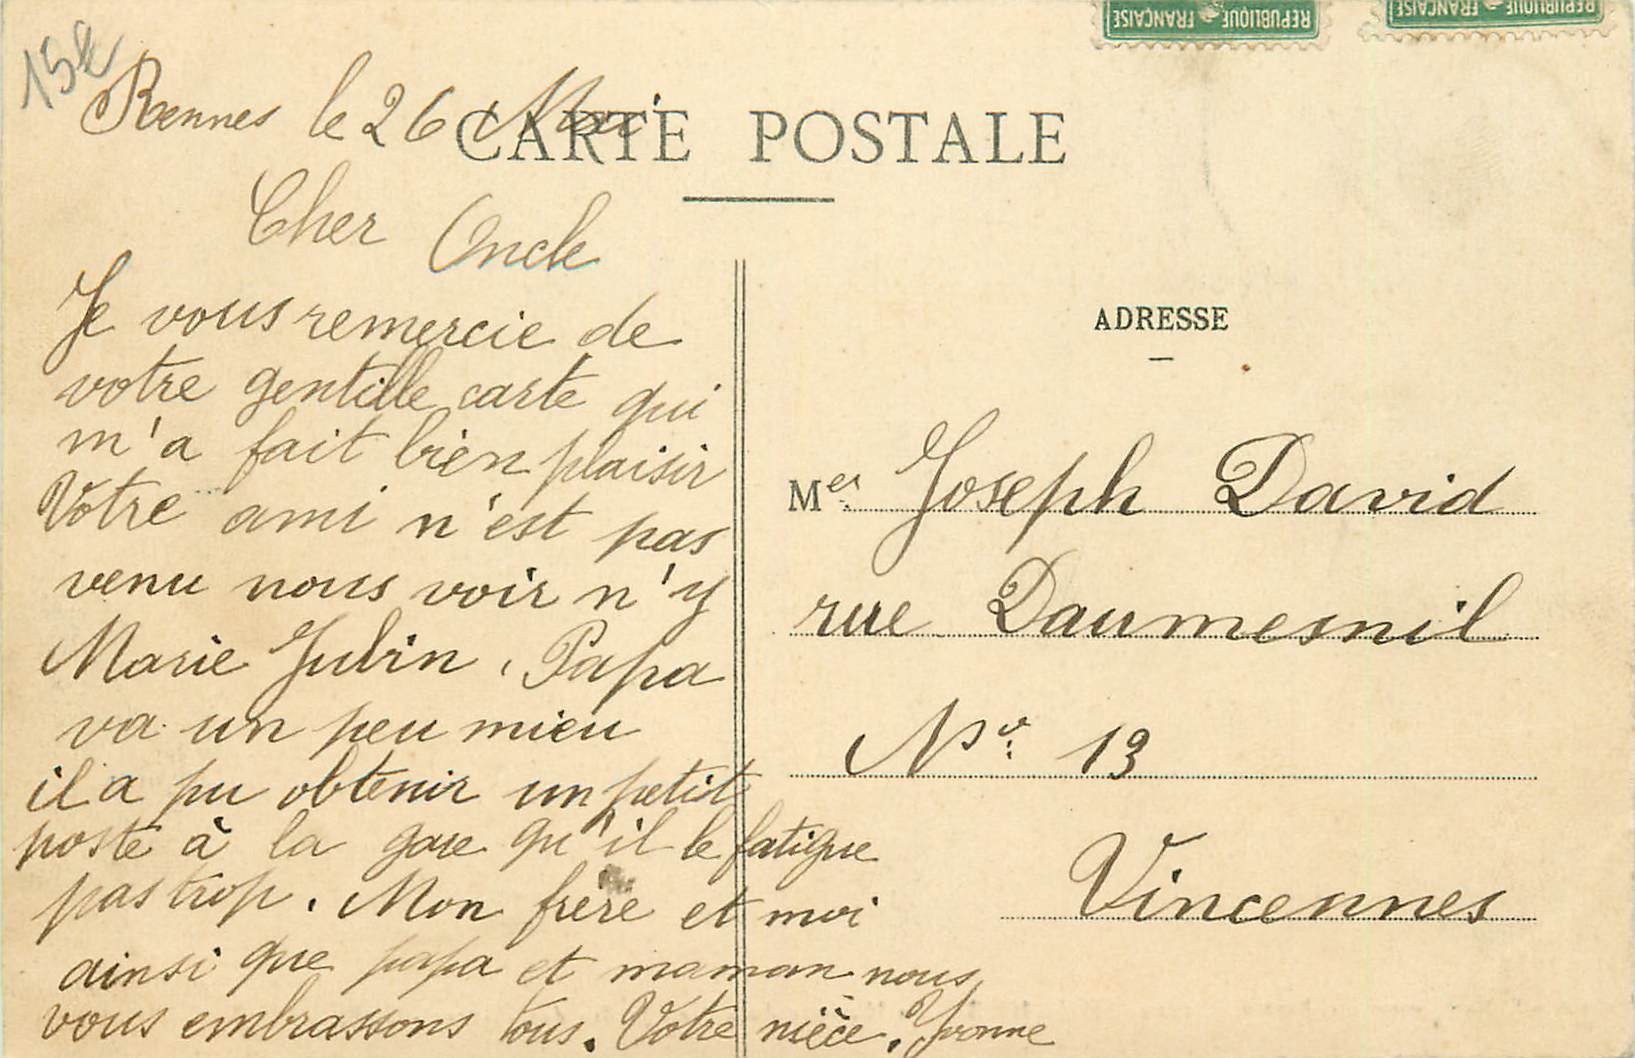 15€
REPUBLIQUE FRANÇAISE
REPUBLIQUE FRANÇAISE
Rennes le 26 Mai
CARTE POSTALE
Cher Oncle
Je vous remercie de
votre gentille carte qui
m'a fait bien plaisir
Votre ami n'est pas
venu nous voir n'y
Marie Jubin. Papa
va un peu mieu
il a pu obtenir un petit
poste à la gare qu'il le fatigue
pas trop. Mon frère et moi
ainsi que papa et maman nous
vous embrassons tous. Votre nièce. Yvonne
ADRESSE
Mer Joseph David
rue Daumesnil
No: 13
Vincennes